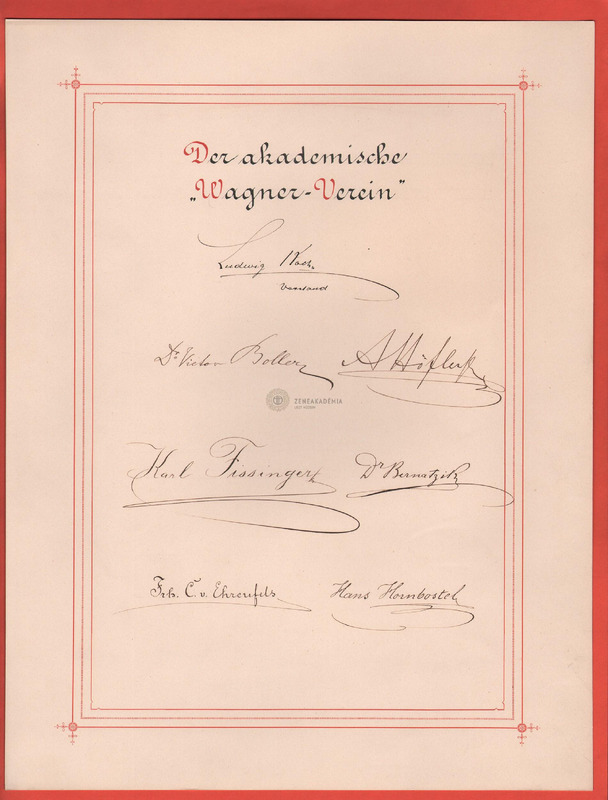 Der akademische
„Wagner-Verein“
Ludwig Koch
Vorstand
Dr Victor Boller A Höfler
ZENEAKADÉMIA
LISZT MÚZEUM
Karl Fissinger Dr Bernatzik
Frh. C. v. Ehrenfels Hans Hornbostel